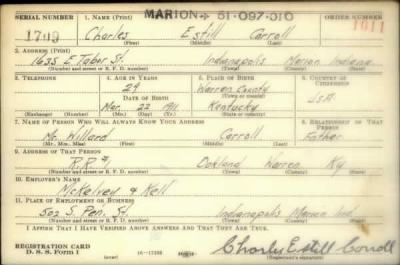 MARION → 51-097-010
SERIAL NUMBER 1. NAME (Print) ORDER NUMBER
1709 Charles Estill Carroll 1011
(First) (Middle) (Last)
2. ADDRESS (Print)
1635 E Tabor St. Indianapolis Marion Indiana
(Number and street or R. F. D. number) (Town) (County) (State)
3. TELEPHONE 4. AGE IN YEARS 5. PLACE OF BIRTH 6. COUNTRY OF CITIZENSHIP
29 Warren County
DATE OF BIRTH (Town or county) U.S.A.
Mar. 22 1911 Kentucky
(Exchange) (Number) (Mo.) (Day) (Yr.) (State or country)
7. NAME OF PERSON WHO WILL ALWAYS KNOW YOUR ADDRESS 8. RELATIONSHIP OF THAT PERSON
Mr. Willard Carroll Father
(Mr., Mrs., Miss) (First) (Middle) (Last)
9. ADDRESS OF THAT PERSON
R.R. # Oakland Warren Ky
(Number and street or R. F. D. number) (Town) (County) (State)
10. EMPLOYER'S NAME
McKelvey & Kell
11. PLACE OF EMPLOYMENT OR BUSINESS
502 S. Pen. St Indianapolis Marion Ind.
(Number and street or R. F. D. number) (Town) (County) (State)
I AFFIRM THAT I HAVE VERIFIED ABOVE ANSWERS AND THAT THEY ARE TRUE.
REGISTRATION CARD
D. S. S. Form 1 (over) 16-17105 Charles Estill Carroll
(Registrant's signature)